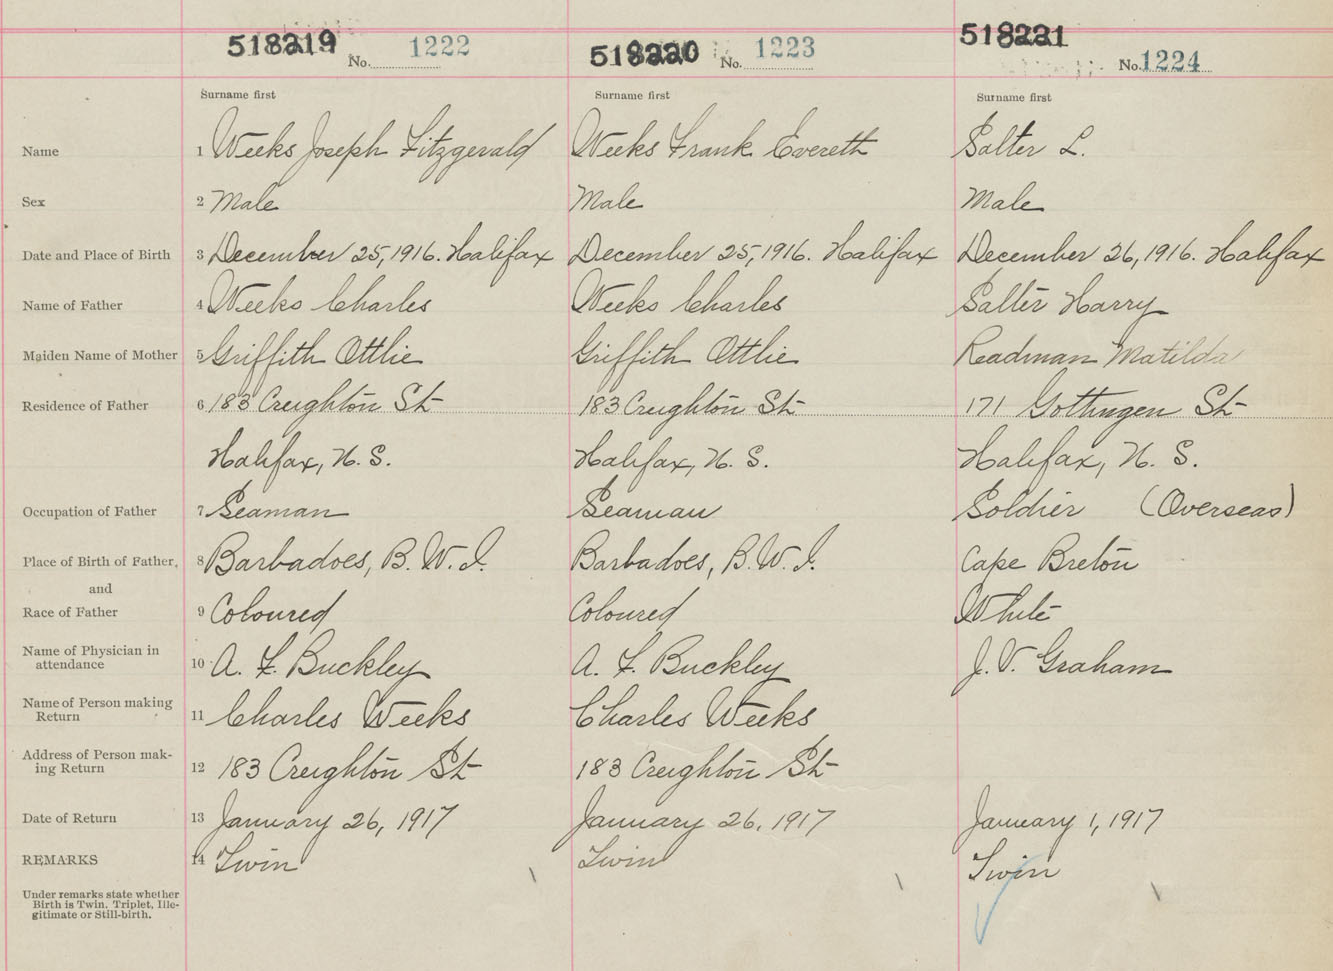 518219 No. 1222 518220 No. 1223 518221 No. 1224
Surname first Surname first Surname first
Name 1 Weeks Joseph Fitzgerald Weeks Frank Evereth Salter L.
Sex 2 Male Male Male
Date and Place of Birth 3 December 25, 1916. Halifax December 25, 1916. Halifax December 26, 1916. Halifax
Name of Father 4 Weeks Charles Weeks Charles Salter Harry
Maiden Name of Mother 5 Griffith Ottlie Griffith Ottlie Readman Matilda
Residence of Father 6 183 Creighton St 183 Creighton St 171 Gottingen St
Halifax, N. S. Halifax, N. S. Halifax, N. S.
Occupation of Father 7 Seaman Seaman Soldier (Overseas)
Place of Birth of Father, 8 Barbadoes, B. W. I. Barbadoes, B. W. I. Cape Breton
and
Race of Father 9 Coloured Coloured White
Name of Physician in
attendance 10 A. F. Buckley A. F. Buckley J. V. Graham
Name of Person making
Return 11 Charles Weeks Charles Weeks
Address of Person mak-
ing Return 12 183 Creighton St 183 Creighton St
Date of Return 13 January 26, 1917 January 26, 1917 January 1, 1917
REMARKS 14 Twin Twin Twin
Under remarks state whether
Birth is Twin, Triplet, Ille-
gitimate or Still-birth.